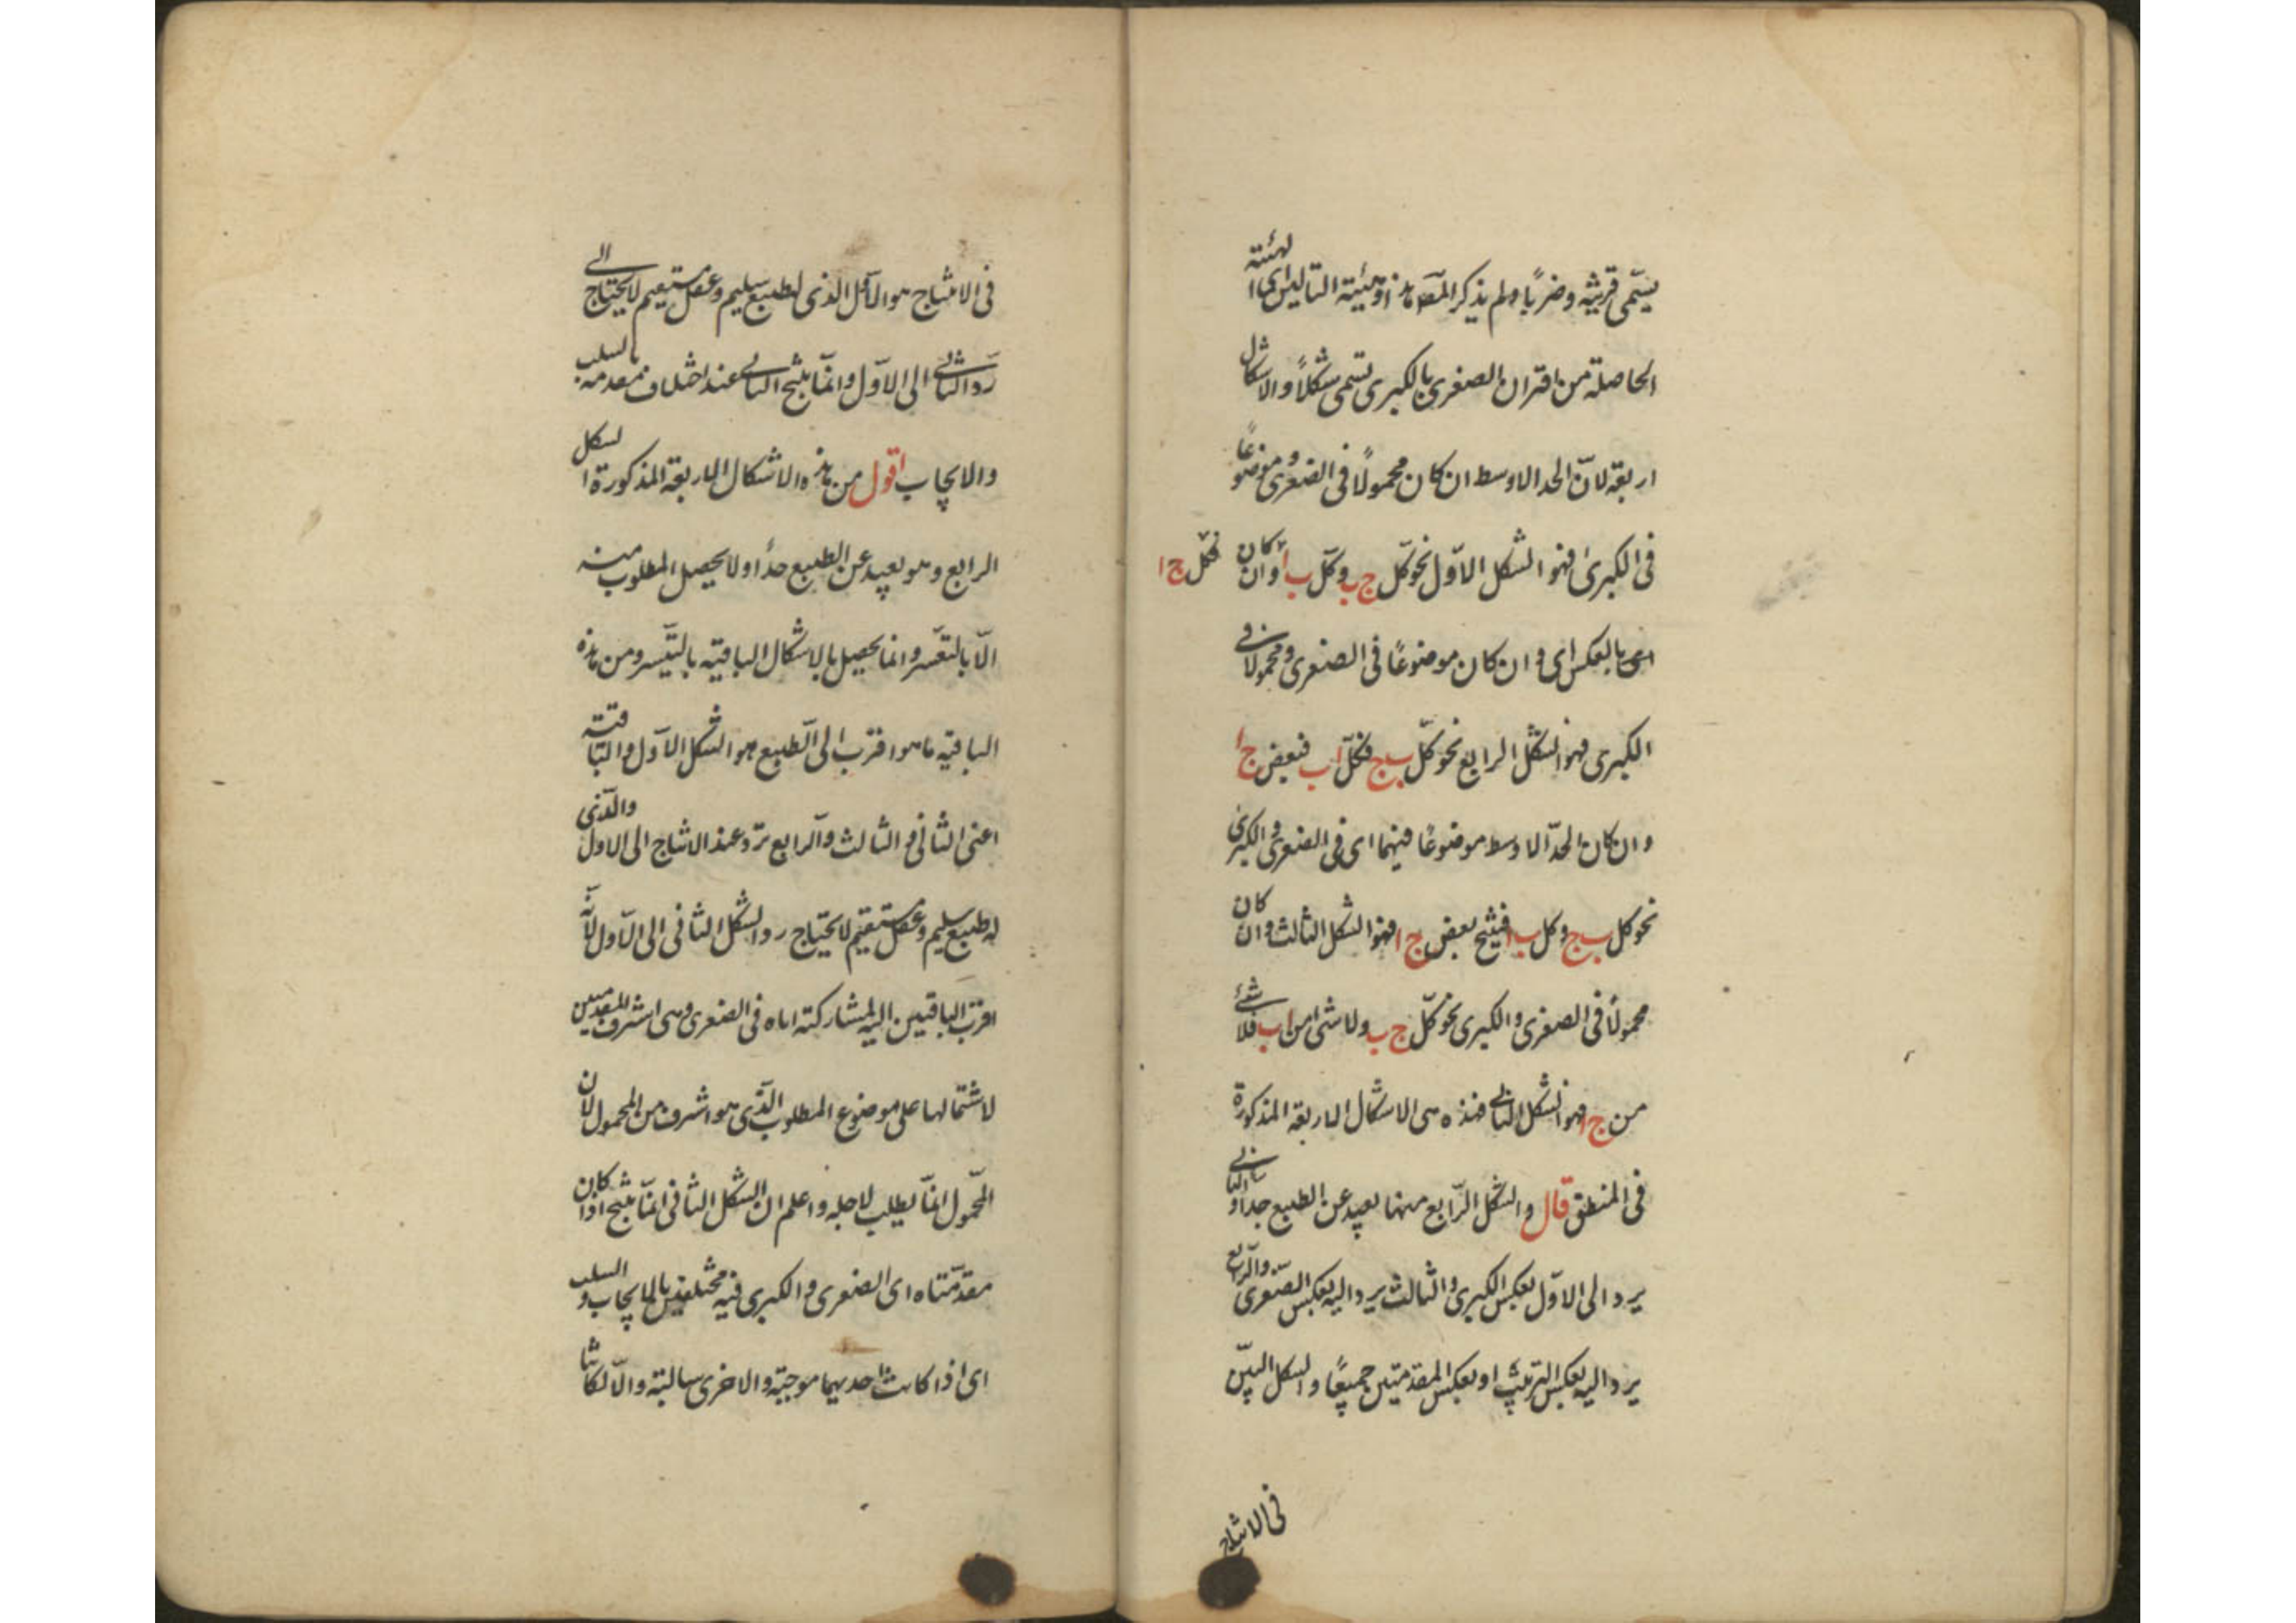 يسمّى قرينة وضربًا ولم يذكر المصّ هذا وهيئة التاليف اى الهيئة
الحاصلة من اقتران الصغرى بالكبرى تسمى شكلاً والاشكال
اربعة لانّ الحد الاوسط ان كان محمولًا فى الصغرى وموضوعًا
فى الكبرى فهو الشكل الاوّل نحو كل ج ب وكل ب ا فكل ج ا وان كان
بالعكس اى وان كان موضوعًا فى الصغرى ومحمولا فى
الكبرى فهو الشكل الرابع نحو كلّ ب ج وكل ا ب فبعض ج ا
وان كان الحدّ الاوسط موضوعًا فيهما اى فى الصغرى والكبرى
نحو كل ب ج وكل ب ا فينتج بعض ج ا فهو الشكل الثالث وان كان
محمولًا فى الصغرى والكبرى نحو كلّ ج ب ولا شئ من ا ب فلا شئ
من ج ا فهو الشكل الثانى فهذه هى الاشكال الاربعة المذكورة
فى المنطق قال والشكل الرّابع منها بعيد عن الطبع جدا والثانى
يرد الى الاوّل بعكس الكبرى والثالث يرد اليه بعكس الصّغرى والرّابع
يرد اليه بعكس الترتيب او بعكس المقدمتين جميعًا والشكل البيّن
فى الانتاج
فى الانتاج هو الاوّل الذى له طبع سليم وعقل مستقيم لا يحتاج الى
ردّ الثانى الى الاوّل وانّما ينتج الثانى عند اختلاف مقدمتيه بالسلب
والايجاب اقول من هذه الاشكال الاربعة المذكورة الشكل
الرابع وهو بعيد عن الطبع جدًا ولا يحصل المطلوب منه
الّا بالتعسّر وانما يحصل بالاشكال الباقية بالتيسّر ومن هذه
الباقية ما هو اقرب الى الطبع هو الشكل الاوّل والباقية
اعنى الثانى والثالث والرابع تردّ عند الانتاج الى الاول والّذى
له طبع سليم وعقل مستقيم لا يحتاج رد الشكل الثانى الى الاوّل لانّه
اقرب الباقيين اليه لمشاركته اياه فى الصغرى وهى اشرف المقدمتين
لاشتمالها على موضوع المطلوب الّذى هو اشرف من المحمول لان
المحمول انّما يطلب لاجله واعلم ان الشكل الثانى انّما ينتج اذا كان
مقدّمتاه اى الصغرى والكبرى فيه مختلفتين بالايجاب والسلب
اى اذا كانت احديهما موجبة والاخرى سالبة والّا لكانتا